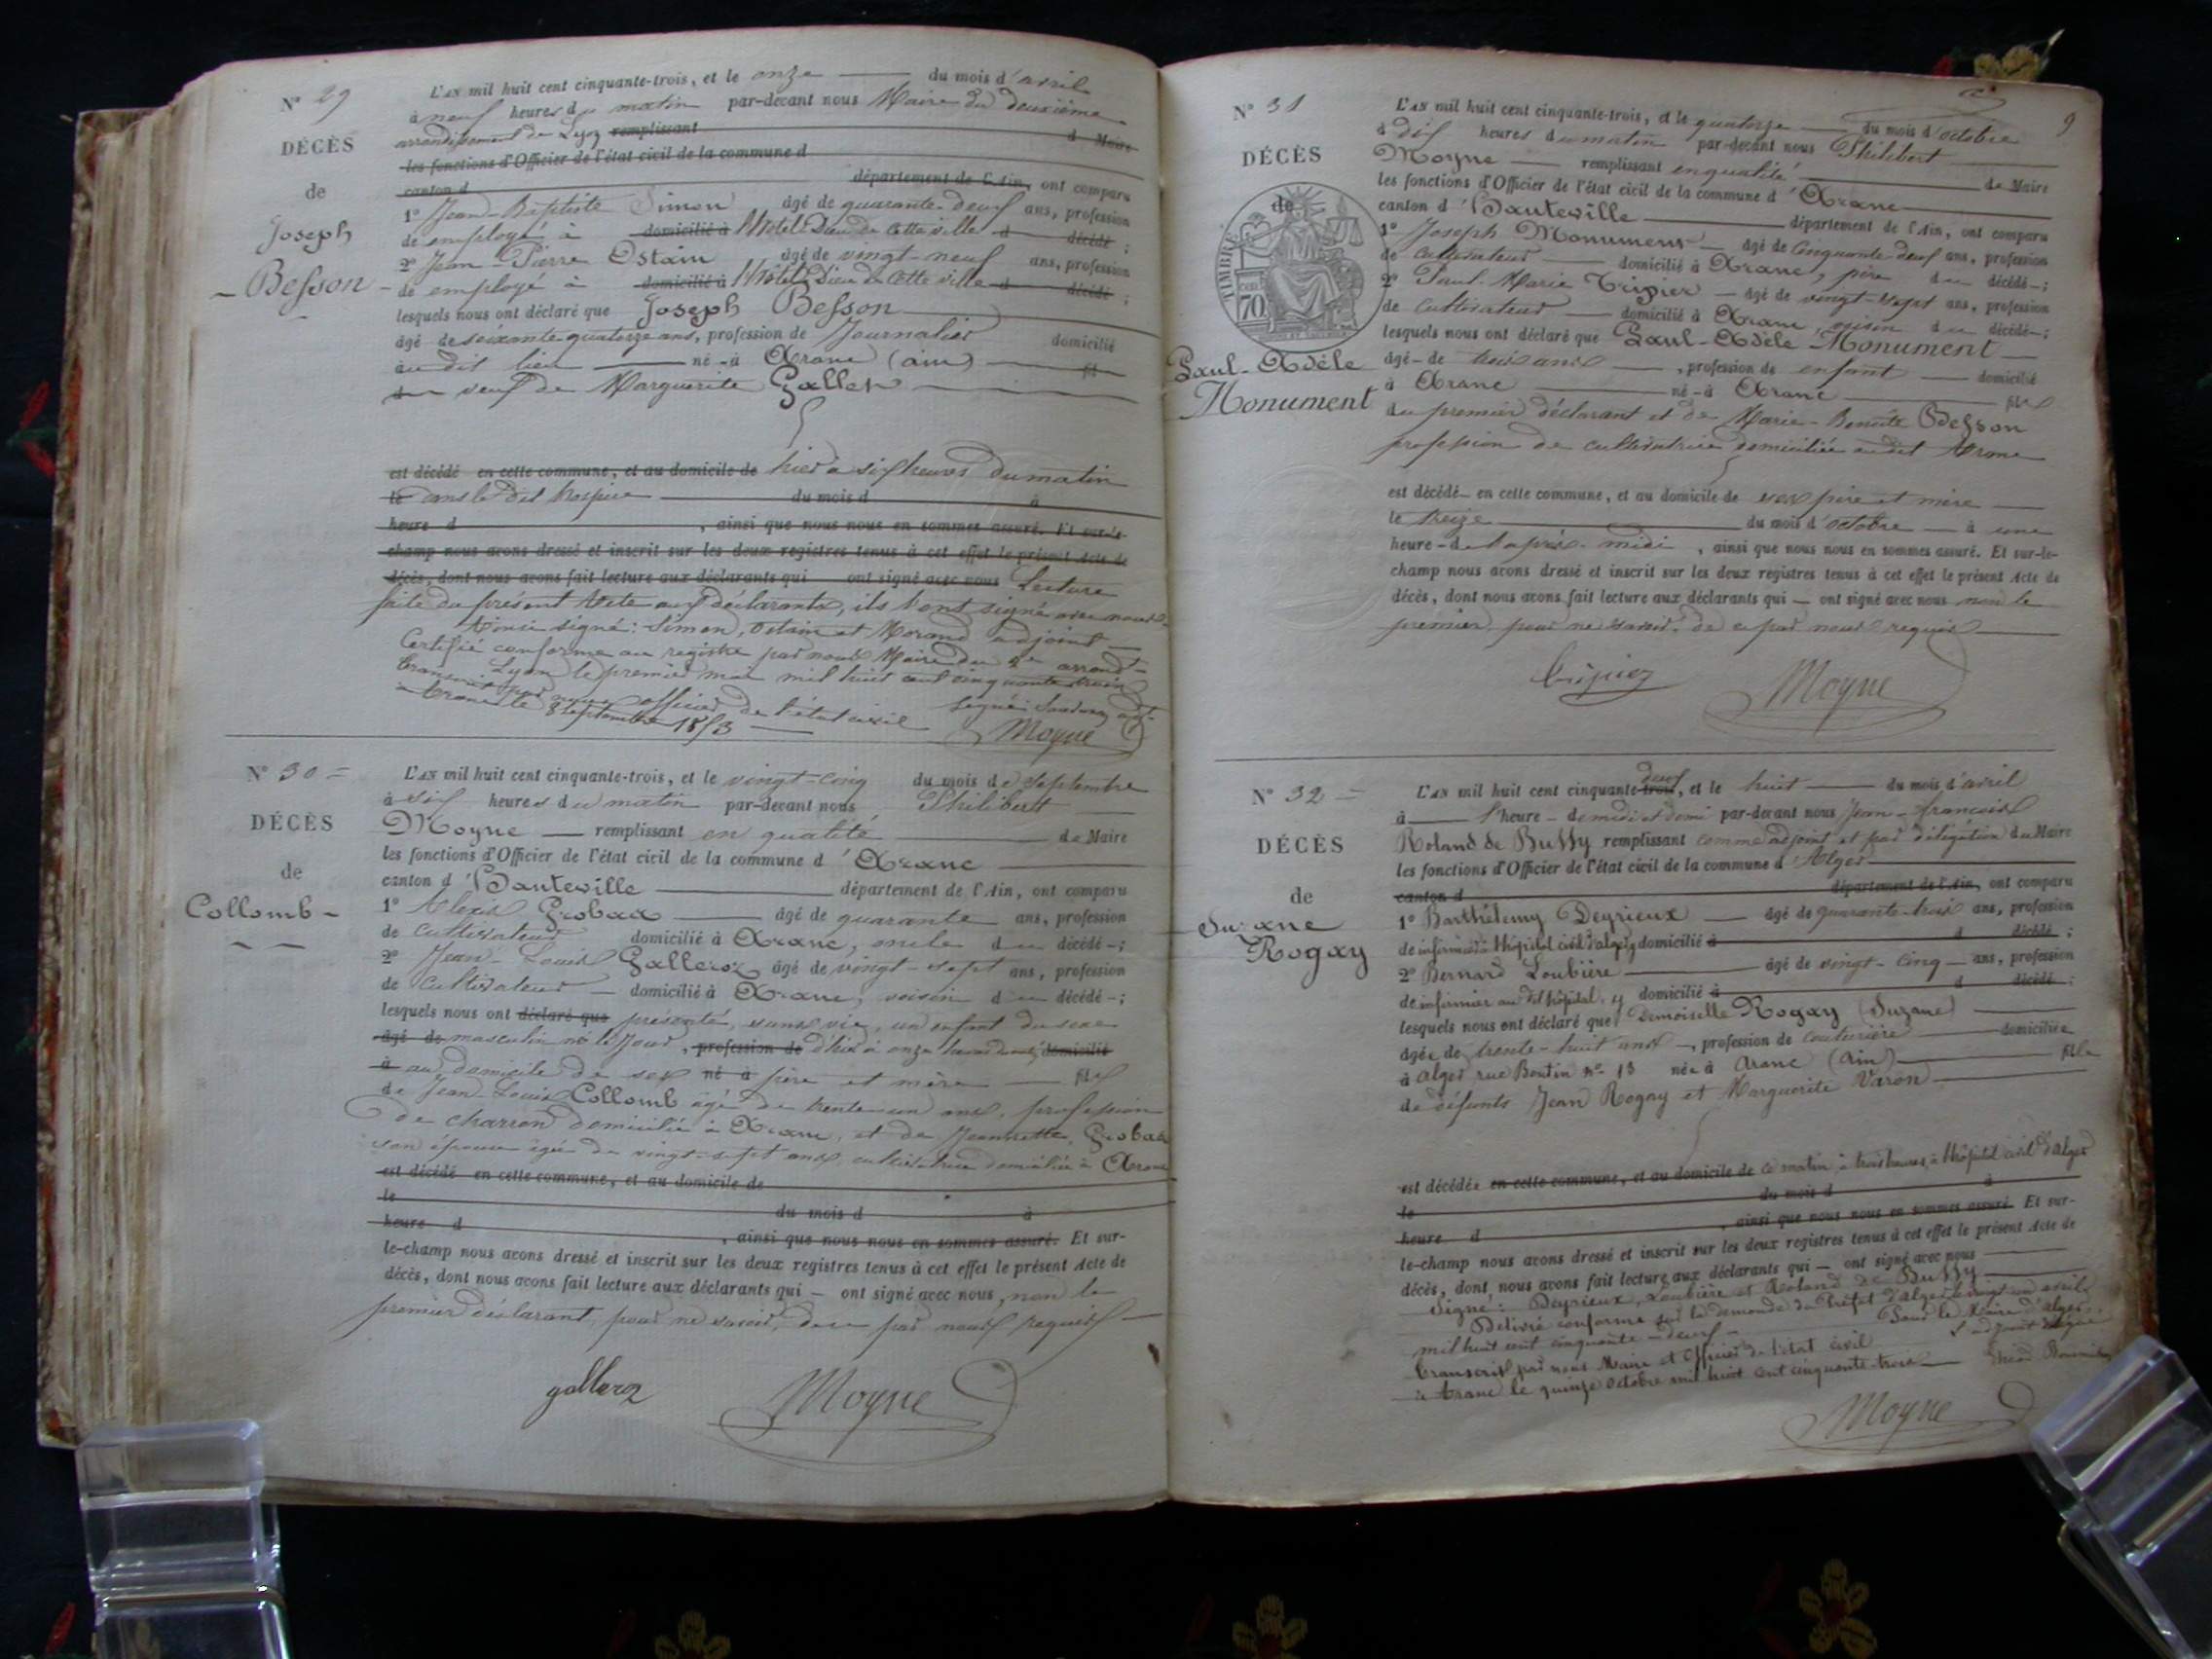 N° 29
DÉCÈS
de
Joseph
Besson
L'AN mil huit cent cinquante-trois, et le onze du mois d'avril
à neuf heures du matin par-devant nous Maire du deuxième
arrondissement de Lyon remplissant d Maire
les fonctions d'Officier de l'état civil de la commune d
canton d département de l'Ain, ont comparu
1° Jean-Baptiste Simon âgé de quarante-deux ans, profession
de employé à domicilié à l'Hôtel Dieu de cette ville d décédé ;
2° Jean-Pierre Ostain âgé de vingt-neuf ans, profession
de employé à domicilié à l'Hôtel Dieu de cette ville d décédé ;
lesquels nous ont déclaré que Joseph Besson
âgé de soixante-quatorze ans, profession de Journalier domicilié
au dit lieu né à Aranc (ain) fil
veuf de Marguerite Gallet
est décédé en cette commune, et au domicile de hier à six heures du matin
le dans le dit hospice du mois d à
heure d , ainsi que nous nous en sommes assuré. Et sur-le-
champ nous avons dressé et inscrit sur les deux registres tenus à cet effet le présent Acte de
décès, dont nous avons fait lecture aux déclarants qui ont signé avec nous Lecture
faite du présent Acte aux déclarants, ils l'ont signé avec nous
Ainsi signé : Simon, Ostain et Morand adjoint
Certifié conforme au registre par nous Maire du 2e arrondt
Lyon le premier mai mil huit cent cinquante trois
Transcrit par nous officier de l'état civil signé:
Aranc le 3 septembre 1853 Moyne
N° 30
DÉCÈS
de
Collomb
L'AN mil huit cent cinquante-trois, et le vingt-cinq du mois de septembre
à six heures du matin par-devant nous Philibert
Moyne remplissant en qualité de Maire
les fonctions d'Officier de l'état civil de la commune d'Aranc
canton d'Hauteville département de l'Ain, ont comparu
1° Alexis Grobas âgé de quarante ans, profession
de Cultivateur domicilié à Aranc, oncle du décédé ;
2° Jean-Louis Galleroz âgé de vingt-sept ans, profession
de Cultivateur domicilié à Aranc, voisin du décédé ;
lesquels nous ont déclaré que présenté, sans vie, un enfant du sexe
âgé de masculin né le jour, profession de d'hier à onze heures domicilié
à au domicile de ses né à père et mère fils
de Jean-Louis Collomb âgé de trente-un ans, profession
de charron domicilié à Aranc, et de Jeannette Grobas
son épouse âgée de vingt-sept ans cultivatrice domiciliée à Aranc
est décédé en cette commune, et au domicile de
le du mois d à
heure d , ainsi que nous nous en sommes assuré. Et sur-
le-champ nous avons dressé et inscrit sur les deux registres tenus à cet effet le présent Acte de
décès, dont nous avons fait lecture aux déclarants qui ont signé avec nous, non le
premier déclarant, pour ne savoir, de ce par nous requis
galleroz Moyne
9
N° 31
DÉCÈS
de
TIMBRE
70
Paul-Adèle
Monument
L'AN mil huit cent cinquante-trois, et le quatorze du mois d'octobre
à dix heures du matin par-devant nous Philibert
Moyne remplissant en qualité de Maire
les fonctions d'Officier de l'état civil de la commune d'Aranc
canton d'Hauteville département de l'Ain, ont comparu
1° Joseph Monument âgé de Cinquante-deux ans, profession
de Cultivateur domicilié à Aranc, père du décédé ;
2° Paul-Marie Tripier âgé de vingt-sept ans, profession
de Cultivateur domicilié à Aranc, voisin du décédé ;
lesquels nous ont déclaré que Paul-Adèle Monument
âgé de trois ans, profession de enfant domicilié
à Aranc né à Aranc fils
du premier déclarant et de Marie-Benoite Besson
profession de cultivatrice domiciliée audit Aranc
est décédé en cette commune, et au domicile de ses père et mère
le treize du mois d'octobre à une
heure de l'après-midi, ainsi que nous nous en sommes assuré. Et sur-le-
champ nous avons dressé et inscrit sur les deux registres tenus à cet effet le présent Acte de
décès, dont nous avons fait lecture aux déclarants qui ont signé avec nous non le
premier, pour ne savoir, de ce par nous requis
Tripier Moyne
N° 32
DÉCÈS
de
Suzane
Rogay
L'AN mil huit cent cinquante-trois deux, et le huit du mois d'avril
à l'heure de midi et demi par-devant nous Jean-François
Roland de Bussy remplissant comme adjoint et par délégation du Maire
les fonctions d'Officier de l'état civil de la commune d'Alger
canton d département de l'Ain, ont comparu
1° Barthélemy Deyrieux âgé de quarante-trois ans, profession
de infirmier à l'hôpital civil d'alger, y domicilié à d décédé ;
2° Bernard Loubière âgé de vingt-cinq ans, profession
de infirmier au dit hôpital, y domicilié à d décédé ;
lesquels nous ont déclaré que Demoiselle Rogay (Suzane)
âgée de trente-huit ans, profession de couturière domiciliée
à Alger rue Boutin n° 13 née à Aranc (Ain) fille
de défunts Jean Rogay et Marguerite Varon
est décédée en cette commune, et au domicile de ce matin à trois heures, à l'hôpital civil d'Alger
le du mois d à
heure d , ainsi que nous nous en sommes assuré. Et sur-
le-champ nous avons dressé et inscrit sur les deux registres tenus à cet effet le présent Acte de
décès, dont nous avons fait lecture aux déclarants qui ont signé avec nous
Signé : Deyrieux, Loubière et Roland de Bussy
Délivré conforme sur la demande du Préfet d'alger le vingt un avril
mil huit cent cinquante-deux Pour le Maire d'alger
Transcrit par nous Maire et Officier de l'état civil l'adjoint signé
à Aranc le quinze octobre mil huit cent cinquante-trois
Moyne